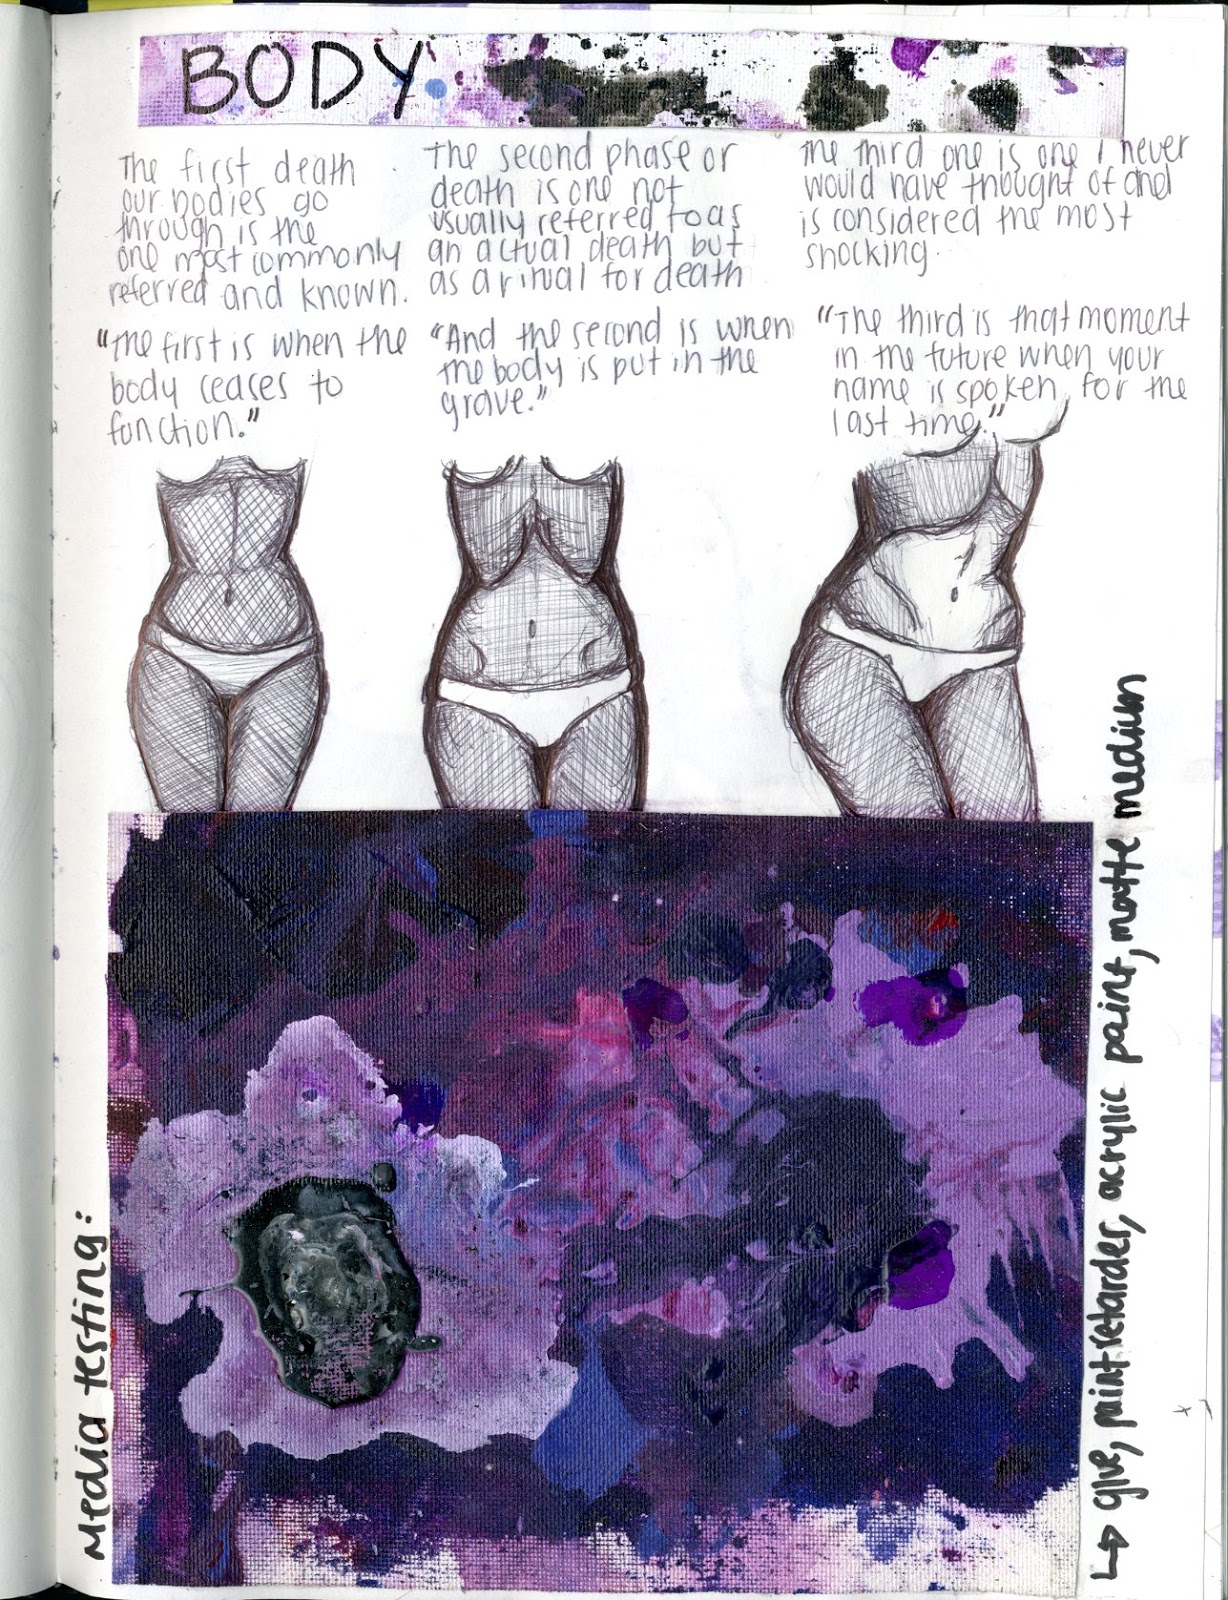 BODY
The first death
our bodies go
through is the
one most commonly
referred and known.
"The first is when the
body ceases to
function."
The second phase or
death is one not
usually referred to as
an actual death but
as a ritual for death
"And the second is when
the body is put in the
grave."
The third one is one I never
would have thought of and
is considered the most
shocking.
"The third is that moment
in the future when your
name is spoken for the
last time."
Media testing:
↳ glue, paint retarder, acrylic paint, matte medium